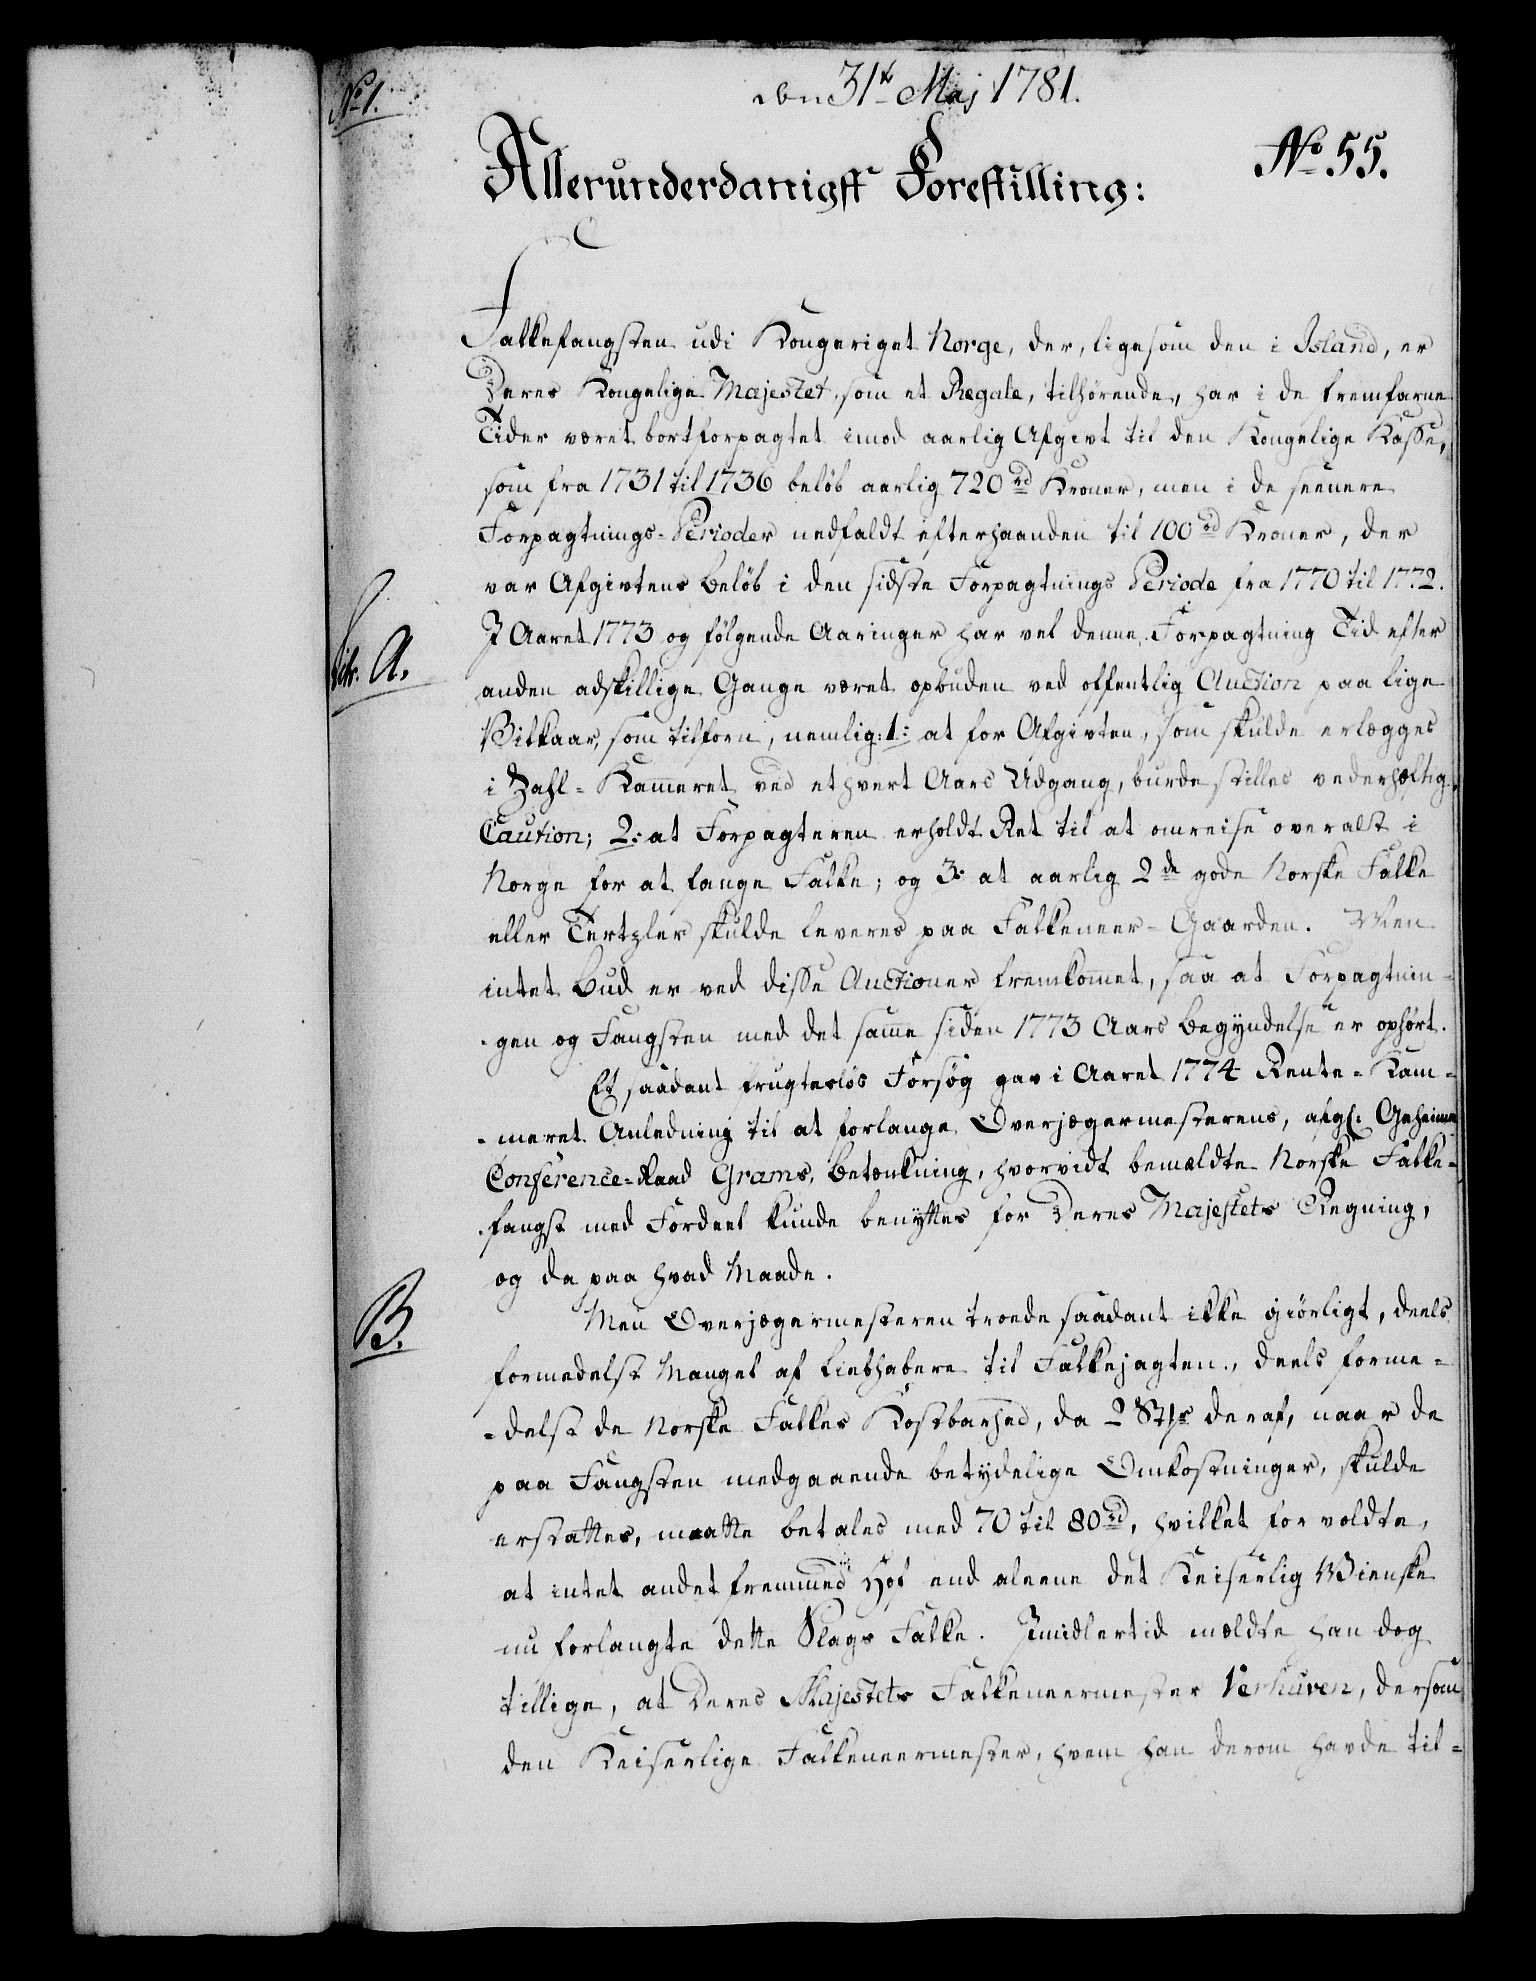 No 1.
den 31te Maj 1781.
No. 55.
Allerunderdanigst Forestilling:
Falkefangsten udi Kongeriget Norge, der, ligesom den i Island, er
Deres Kongelige Majestet, som et Regale, tilhørende, har i de fremfarne
Tider været bortforpagtet imod aarlig Afgivt til den Kongelige Kasse,
som fra 1731 til 1736 beløb aarlig 720 rd Kroner, men i de seenere
Forpagtnings-Perioder nedfaldt efterhaanden til 100 rd Kroner, der
var Afgivtens Beløb i den sidste Forpagtnings Periode fra 1770 til 1772.
I Aaret 1773 og følgende Aaringer har vel denne Forpagtning Tid efter
Litr. A.
anden adskillige Gange været opbuden ved offentlig Auction paa lige
Vilkaar, som tilforn, nemlig: 1: at for Afgivten, som skulde erlægges
i Zahl-Kammeret ved ethvert Aars Udgang, burde stilles vederhæftig
Caution; 2: at Forpagteren erholdt Ret til at omreise overalt i
Norge for at fange Falke; og 3: at aarlig 2de gode Norske Falke
eller Tertzler skulde leveres paa Falkeneer-Gaarden. Men
intet Bud er ved disse Auctioner fremkommet, saa at Forpagtnin-
-gen og Fangsten med det samme siden 1773 Aars Begyndelse er ophørt.
Et saadant frugtesløs Forsøg gav i Aaret 1774 Rente-Kam-
-meret Anledning til at forlange Overjægermesterens, afgl: Geheime
Conference-Raad Grams, Betænkning, hvorvidt bemældte Norske Falke-
-fangst med Fordeel kunde benyttes for Deres Majestets Regning,
og da paa hvad Maade.
B.
Men Overjægermesteren troede saadant ikke giørligt, deels
formedelst Mangel af Liebhabere til Falkejagten, deels forme-
-delst de Norske Falkes Kostbarhed, da 2 Stkr deraf, naar de
paa Fangsten medgaaende betydelige Omkostninger, skulde
erstattes, maatte betales med 70 til 80 rd, hvilket forvoldte,
at intet andet fremmed Hof end aleene det Keiserlig Wienske
nu forlangte dette Slags Falke. Imidlertid mældte han dog
tillige, at Deres Majestets Falkeneermester Verhuven, dersom
den Keiserlige Falkeneermester, hvem han derom havde til-